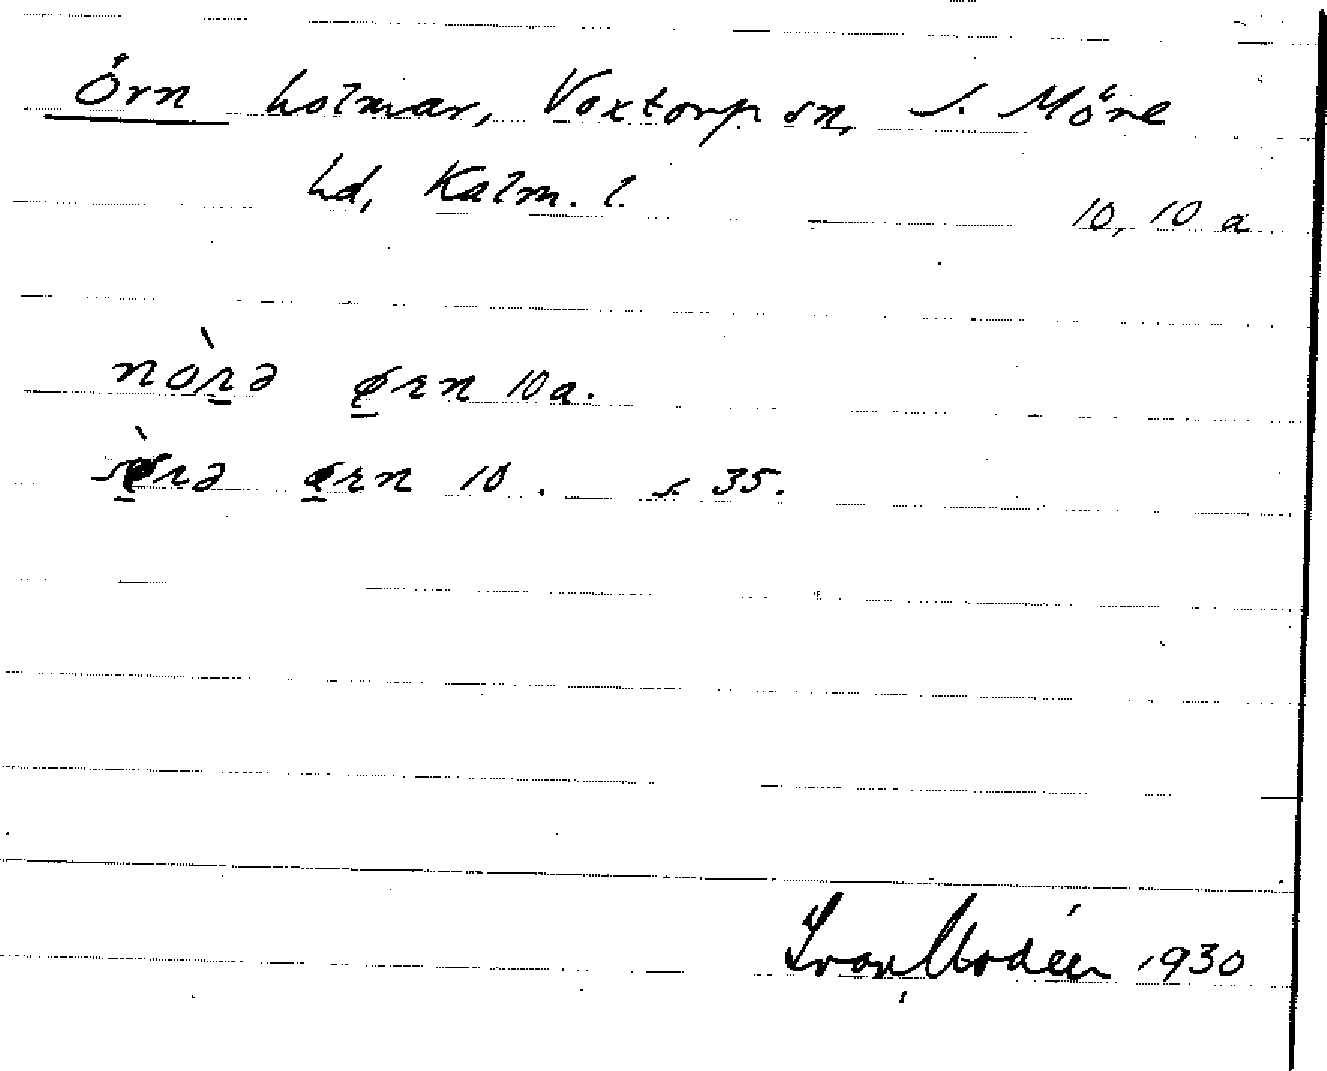 Örn holmar, Voxtorp sn, S. Möre
hd, Kalm. l.
10, 10 a
nò̱rə ø̱rn 10a.
sø̱̀rə ø̱rn 10. s. 35.
Ivar Modéer 1930